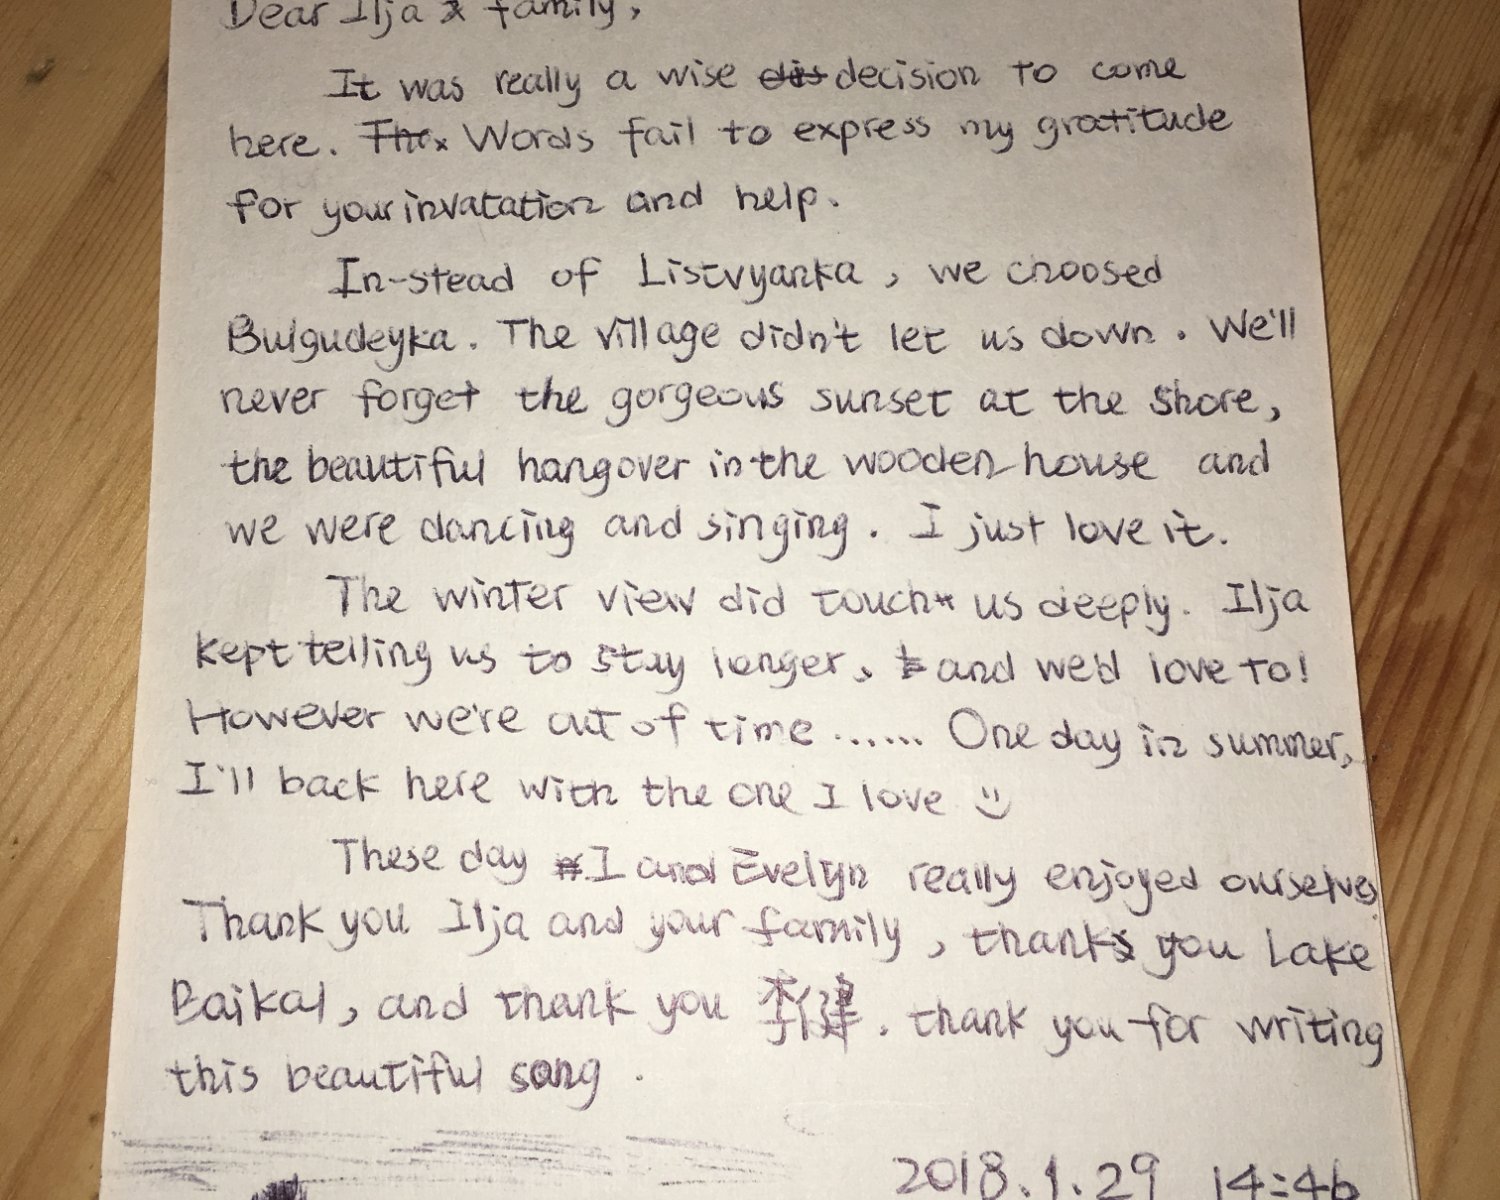 Dear Ilja & family,
It was really a wise decision to come
here. Words fail to express my gratitude
for your invatation and help.
In-stead of Listvyanka, we choosed
Bulgudeyka. The village didn't let us down. We'll
never forget the gorgeous sunset at the shore,
the beautiful hangover in the wooden house and
we were dancing and singing. I just love it.
The winter view did touch us deeply. Ilja
kept telling us to stay longer, and we'd love to!
However we're out of time ...... One day in summer,
I'll back here with the one I love
These day I and Evelyn really enjoyed ourselves
Thank you Ilja and your family, thank you Lake
Baikal, and thank you 李健. thank you for writing
this beautiful song.
2018.1.29 14:46